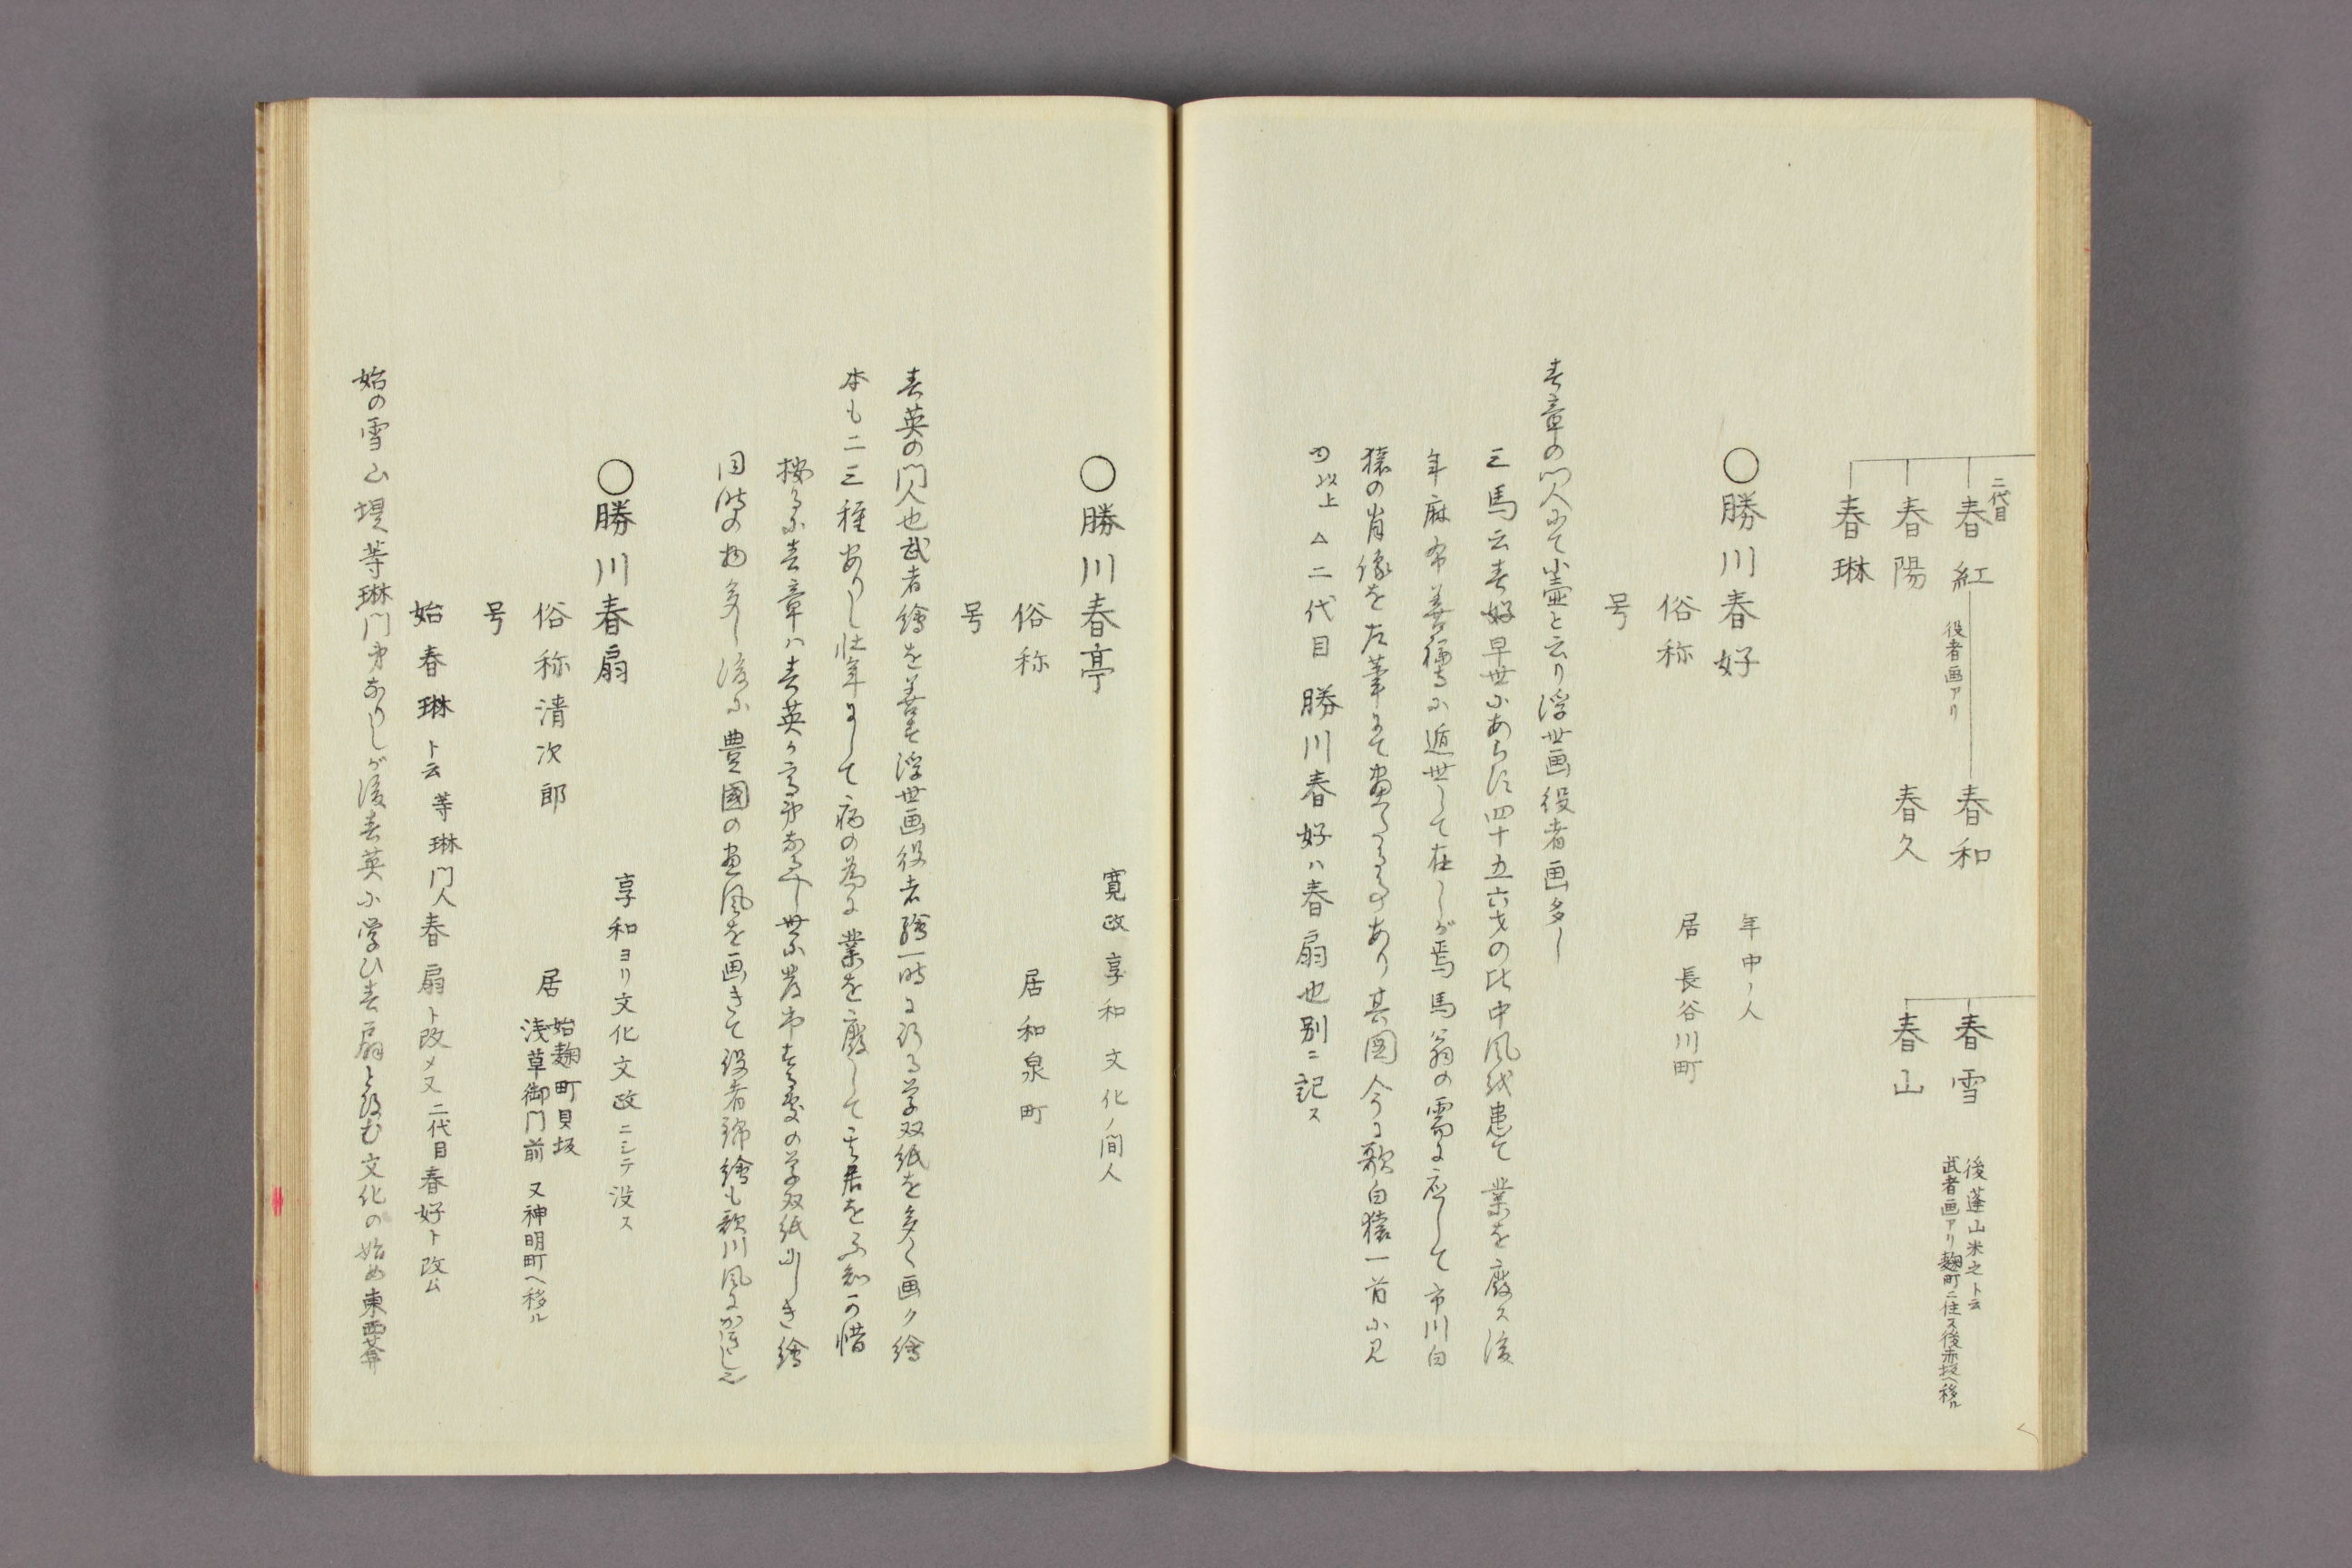 二代目
春紅
役者画アリ
春和
春雪
後蓬山米之ト云
武者画アリ麹町ニ住ス後赤坂ヘ移ル
春陽
春久
春山
春琳
〇勝川春好
年中ノ人
俗称
居 長谷川町
号
春章の門人にて小壷と云り浮世画役者画多し
三馬云春好早世にあらす四十五六才の比中風を患て業を廃ス後
年麻布善福寺に遁世して在しが焉馬翁の需に応して市川白
猿の肖像を左筆にて画たる事あり其図今に歌白猿一首に見
以上 △二代目 勝川春好ハ春扇也別ニ記ス
〇勝川春亭
寛政享和文化ノ間人
俗称
居 和泉町
号
春英の門人也武者繪を善す浮世画役者繪一時に行る草双紙を多く画ク繪
本も二三種ありし壮年にして病の為に業を廃して其居を不知可惜
按るに春章ハ春英か高弟なるへし世に發市する處の草双紙 しき繪
同時の物多し後に豊國の画風を画きて役者錦繪も歌川風にかはりし也
〇勝川春扇
享和ヨリ文化文政ニシテ没ス
俗称清次郎
居 始麹町貝坂
浅草御門前 又神明町ヘ移ル
号
始春琳ト云等琳門人春扇ト改メ又二代目春好ト改ム
始の雪山堤等琳門弟なりしが後春英に学ひ春扇と改む文化の始め東西菴